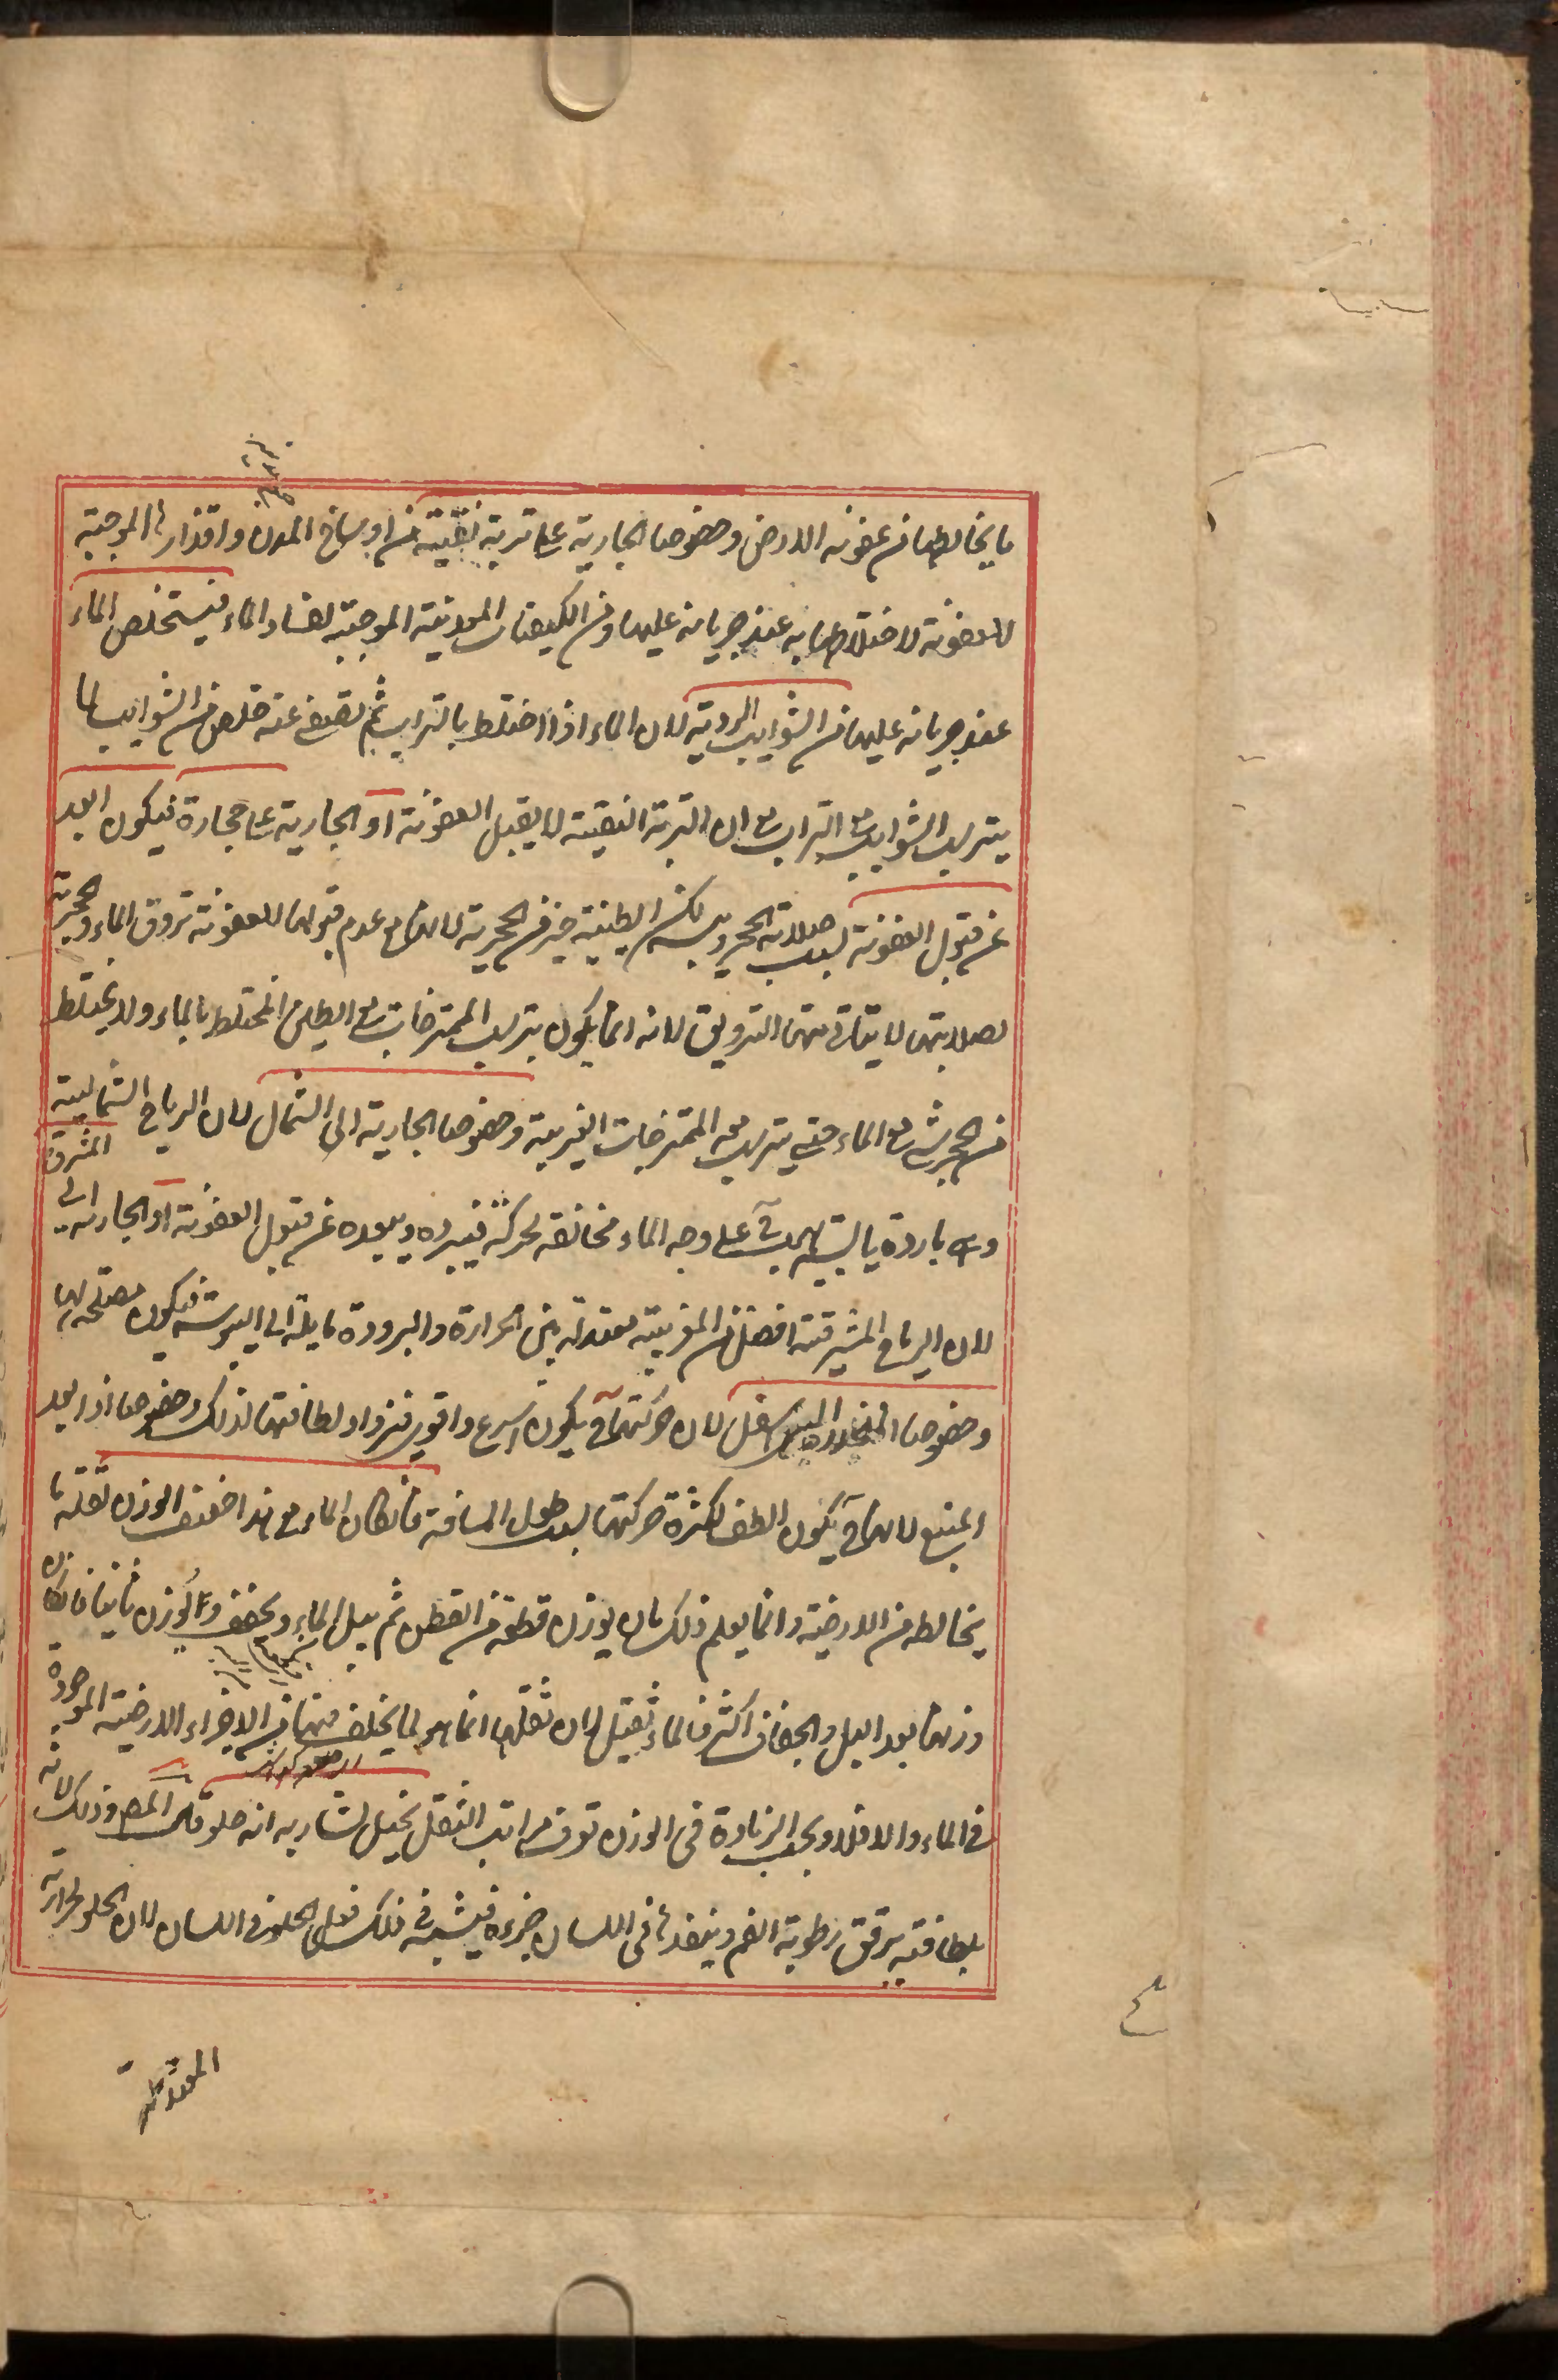 ما يخالطها من عفونة الارض وخصوصا الجارية على تربة نقية من اوساخ المدن واقذارها الموجبة
للعفونة لاختلاطها به عند جريانه عليها ومن الكيفيات المعدنية الموجبة لفساد الماء فيستخلص الماء
عند جريانه عليها من الشوايب الردية لان الماء اذا اختلط بالتراب ثم تصفى عنه خلص من الشوايب لما
يترسب الشوايب مع التراب مع ان التربة النقية لا يقبل العفونة او الجارية على حجارة فيكون ابعد
عن قبول العفونة بسبب صلابة الحجر ويبسه لكن الطينية خير من الحجرية لانها مع عدم قبولها للعفونة تروق الماء والحجرية
لصلابتها لا يتاتى منها الترويق لانه انما يكون بترسب الممتزجات مع الطين المختلط بالماء ولا يختلط
من الحجر شئ مع الماء حتى يترسب معه الممتزجات الغريبة وخصوصا الجارية الى الشمال لان الرياح الشمالية
وهى باردة يابسة تهب ح على وجه الماء مخالفة لحركته فيبرده ويبعده عن قبول العفونة او الجارية الى المشرق
لان الرياح المشرقية افضل من المغربية معتدلة بين الحرارة والبرودة مايلة الى اليبوسة فيكون مصلحة لها
وخصوصا المنحدرة الى اسفل لان حركتها ح يكون اسرع واقوى فيزداد لطافتها لذلك وخصوصا اذا بعد
المنبع لانها ح يكون الطف لكثرة حركتها بسبب طول المسافة فان كان الماء مع هذا خفيف الوزن لقلة ما
يخالطه من الارضية وانما يعلم ذلك بان يوزن قطعة من القطن ثم يبل بالماء ويجفف ويوزن ثانيا فان كان
وزنها بعد البل والجفاف اكثر فالماء ثقيل لان ثقلها انما هو لما يخلف فيها من الاجزاء الارضية الموجودة
فى الماء والا فلا وبحسب الزيادة فى الوزن تعرف مراتب الثقل يخيل لشاربه انه حلو وذلك لانه
بلطافته يرقق رطوبة الفم وينفذها فى اللسان فيشبه ذلك فعل الحلو فى اللسان لان الحلو لحرارته
المعتدلة